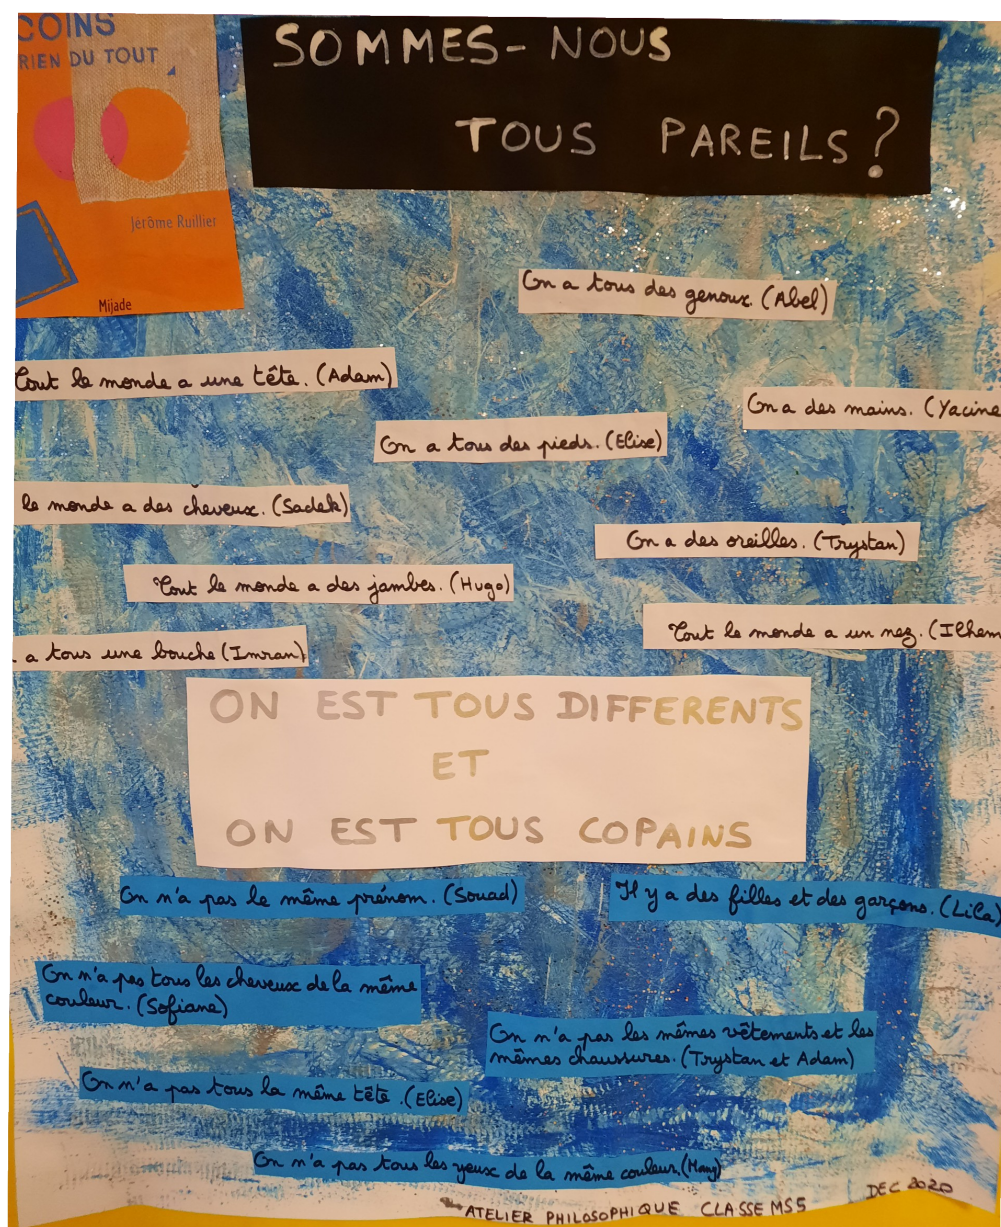 COINS
RIEN DU TOUT
Jérôme Ruillier
Mijade
SOMMES-NOUS
TOUS PAREILS?
On a tous des genoux. (Abel)
Tout le monde a une tête. (Adam)
On a des mains. (Yacine
On a tous des pieds. (Elise)
le monde a des cheveux. (Sadek)
On a des oreilles. (Trystan)
Tout le monde a des jambes. (Hugo)
Tout le monde a un nez. (Ilhem
a tous une bouche (Imran)
ON EST TOUS DIFFERENTS
ET
ON EST TOUS COPAINS
On n'a pas le même prénom. (Souad)
Il y a des filles et des garçons. (Lila)
On n'a pas tous les cheveux de la même
couleur. (Sofiane)
On n'a pas les mêmes vêtements et les
mêmes chaussures. (Trystan et Adam)
On n'a pas tous la même tête. (Elise)
On n'a pas tous les yeux de la même couleur.
ATELIER PHILOSOPHIQUE CLASSE MS5
DEC 2020